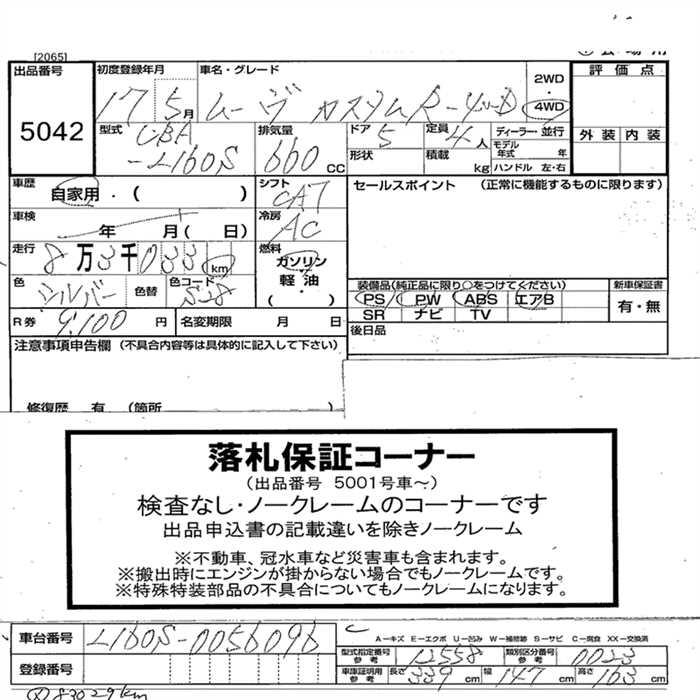 [2065]
出品番号 5042
初度登録年月 17 5月
車名・グレード ムーヴ カスタムR-4WD
2WD・4WD
評価点
外装 内装
型式 CBA-L160S
排気量 660 cc
ドア 5
形状
定員 4人
積載 kg
ディーラー・並行
モデル年式 年
ハンドル 左・右
車歴 自家用・( )
シフト CAT
セールスポイント (正常に機能するものに限ります)
車検 年 月(日)
冷房 AC
走行 8万3千033km
燃料 ガソリン 軽油 ( )
色 シルバー 色替 色コード S28
装備品(純正品に限り○をつけてください) 新車保証書
PS PW ABS エアB
SR ナビ TV
有・無
R券 9,100 円 名変期限 月 日
後日品
注意事項申告欄 (不具合内容等は具体的に記入して下さい)
修復歴 有 (箇所
落札保証コーナー
(出品番号 5001号車~)
検査なし・ノークレームのコーナーです
出品申込書の記載違いを除きノークレーム
※不動車、冠水車など災害車も含まれます。
※搬出時にエンジンが掛からない場合でもノークレームです。
※特殊特装部品の不具合についてもノークレームになります。
車台番号 L160S-0056096
A-キズ E-エクボ U-凹み W-補修跡 S-サビ C-腐食 XX-交換済
型式指定番号 参考 12558 類別区分番号 参考 0023
登録番号
車庫証明用 参考 長さ 339 cm 幅 147 cm 高さ 163 cm
83029km